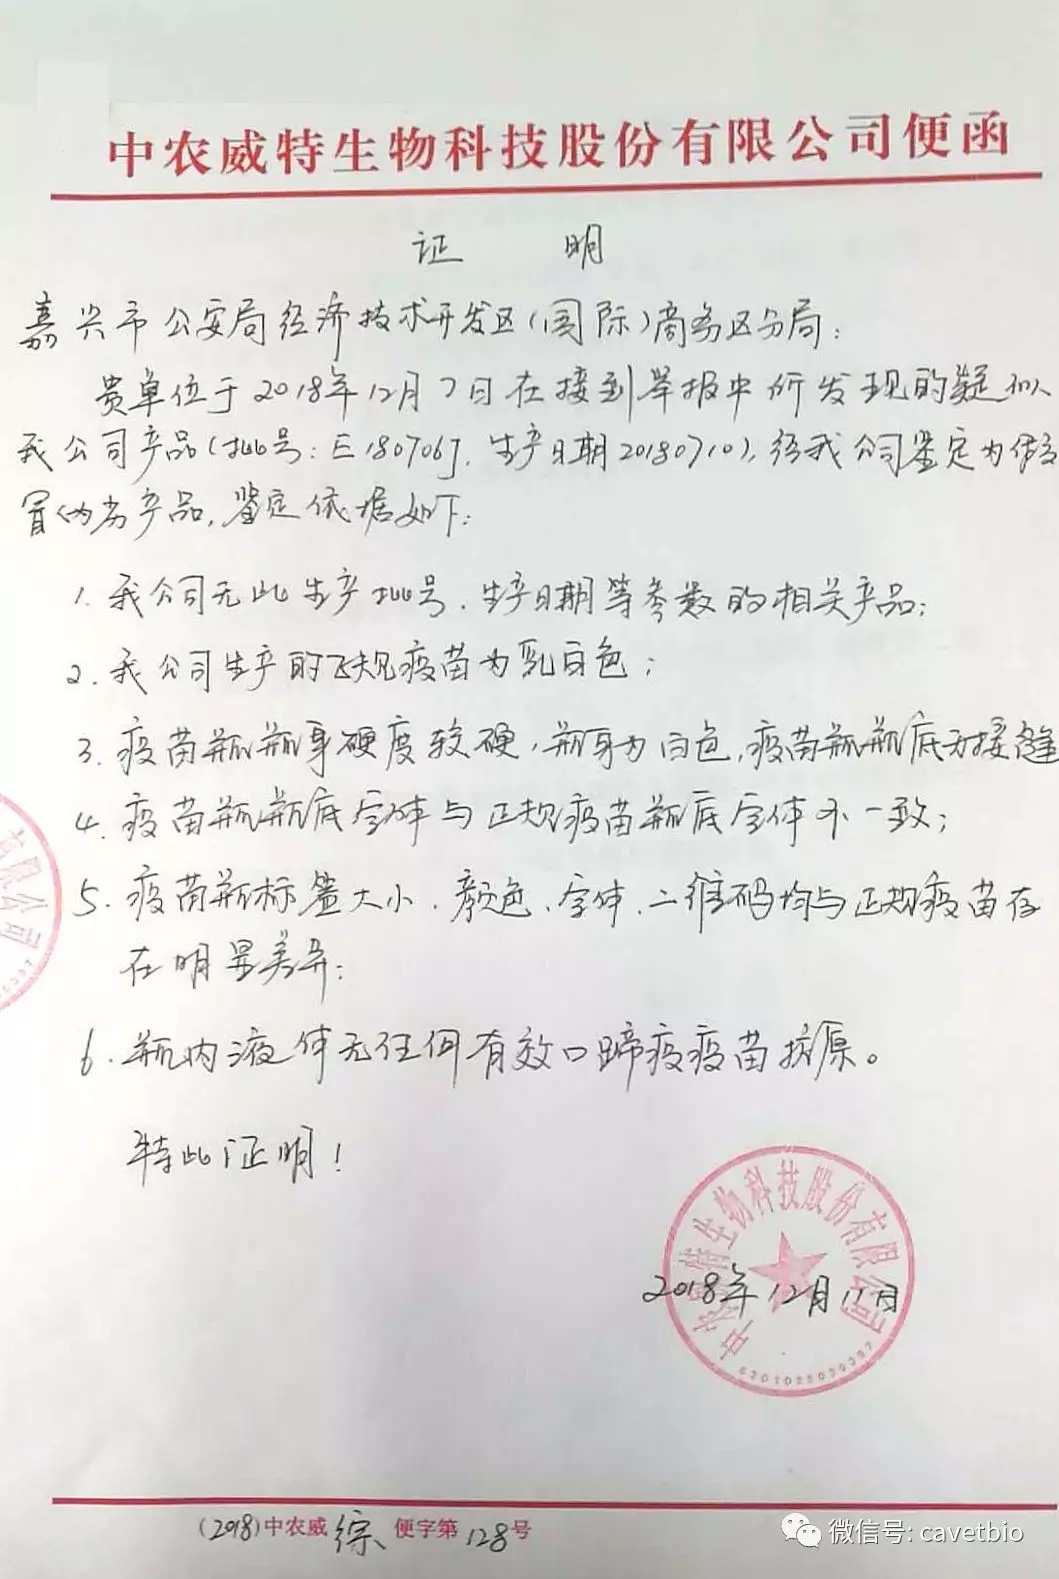 中农威特生物科技股份有限公司便函
证 明
嘉兴市公安局经济技术开发区(国际)商务区分局:
贵单位于2018年12月7日在接到举报中所发现的疑似
我公司产品(批号:E180706J、生产日期20180710),经我公司鉴定为假
冒伪劣产品,鉴定依据如下:
1. 我公司无此生产批号、生产日期等参数的相关产品;
2. 我公司生产的正规疫苗为乳白色;
3. 疫苗瓶瓶身硬度较硬,瓶身为白色,疫苗瓶瓶底有接缝
4. 疫苗瓶瓶底字体与正规疫苗瓶底字体不一致;
5. 疫苗瓶标签大小、颜色、字体、二维码均与正规疫苗存
在明显差异;
6. 瓶内液体无任何有效口蹄疫疫苗抗原。
特此证明!
有限公司
中农威特生物科技股份有限公司
2018年12月11日
6201022030397
(2018)中农威综便字第128号
微信号: cavetbio